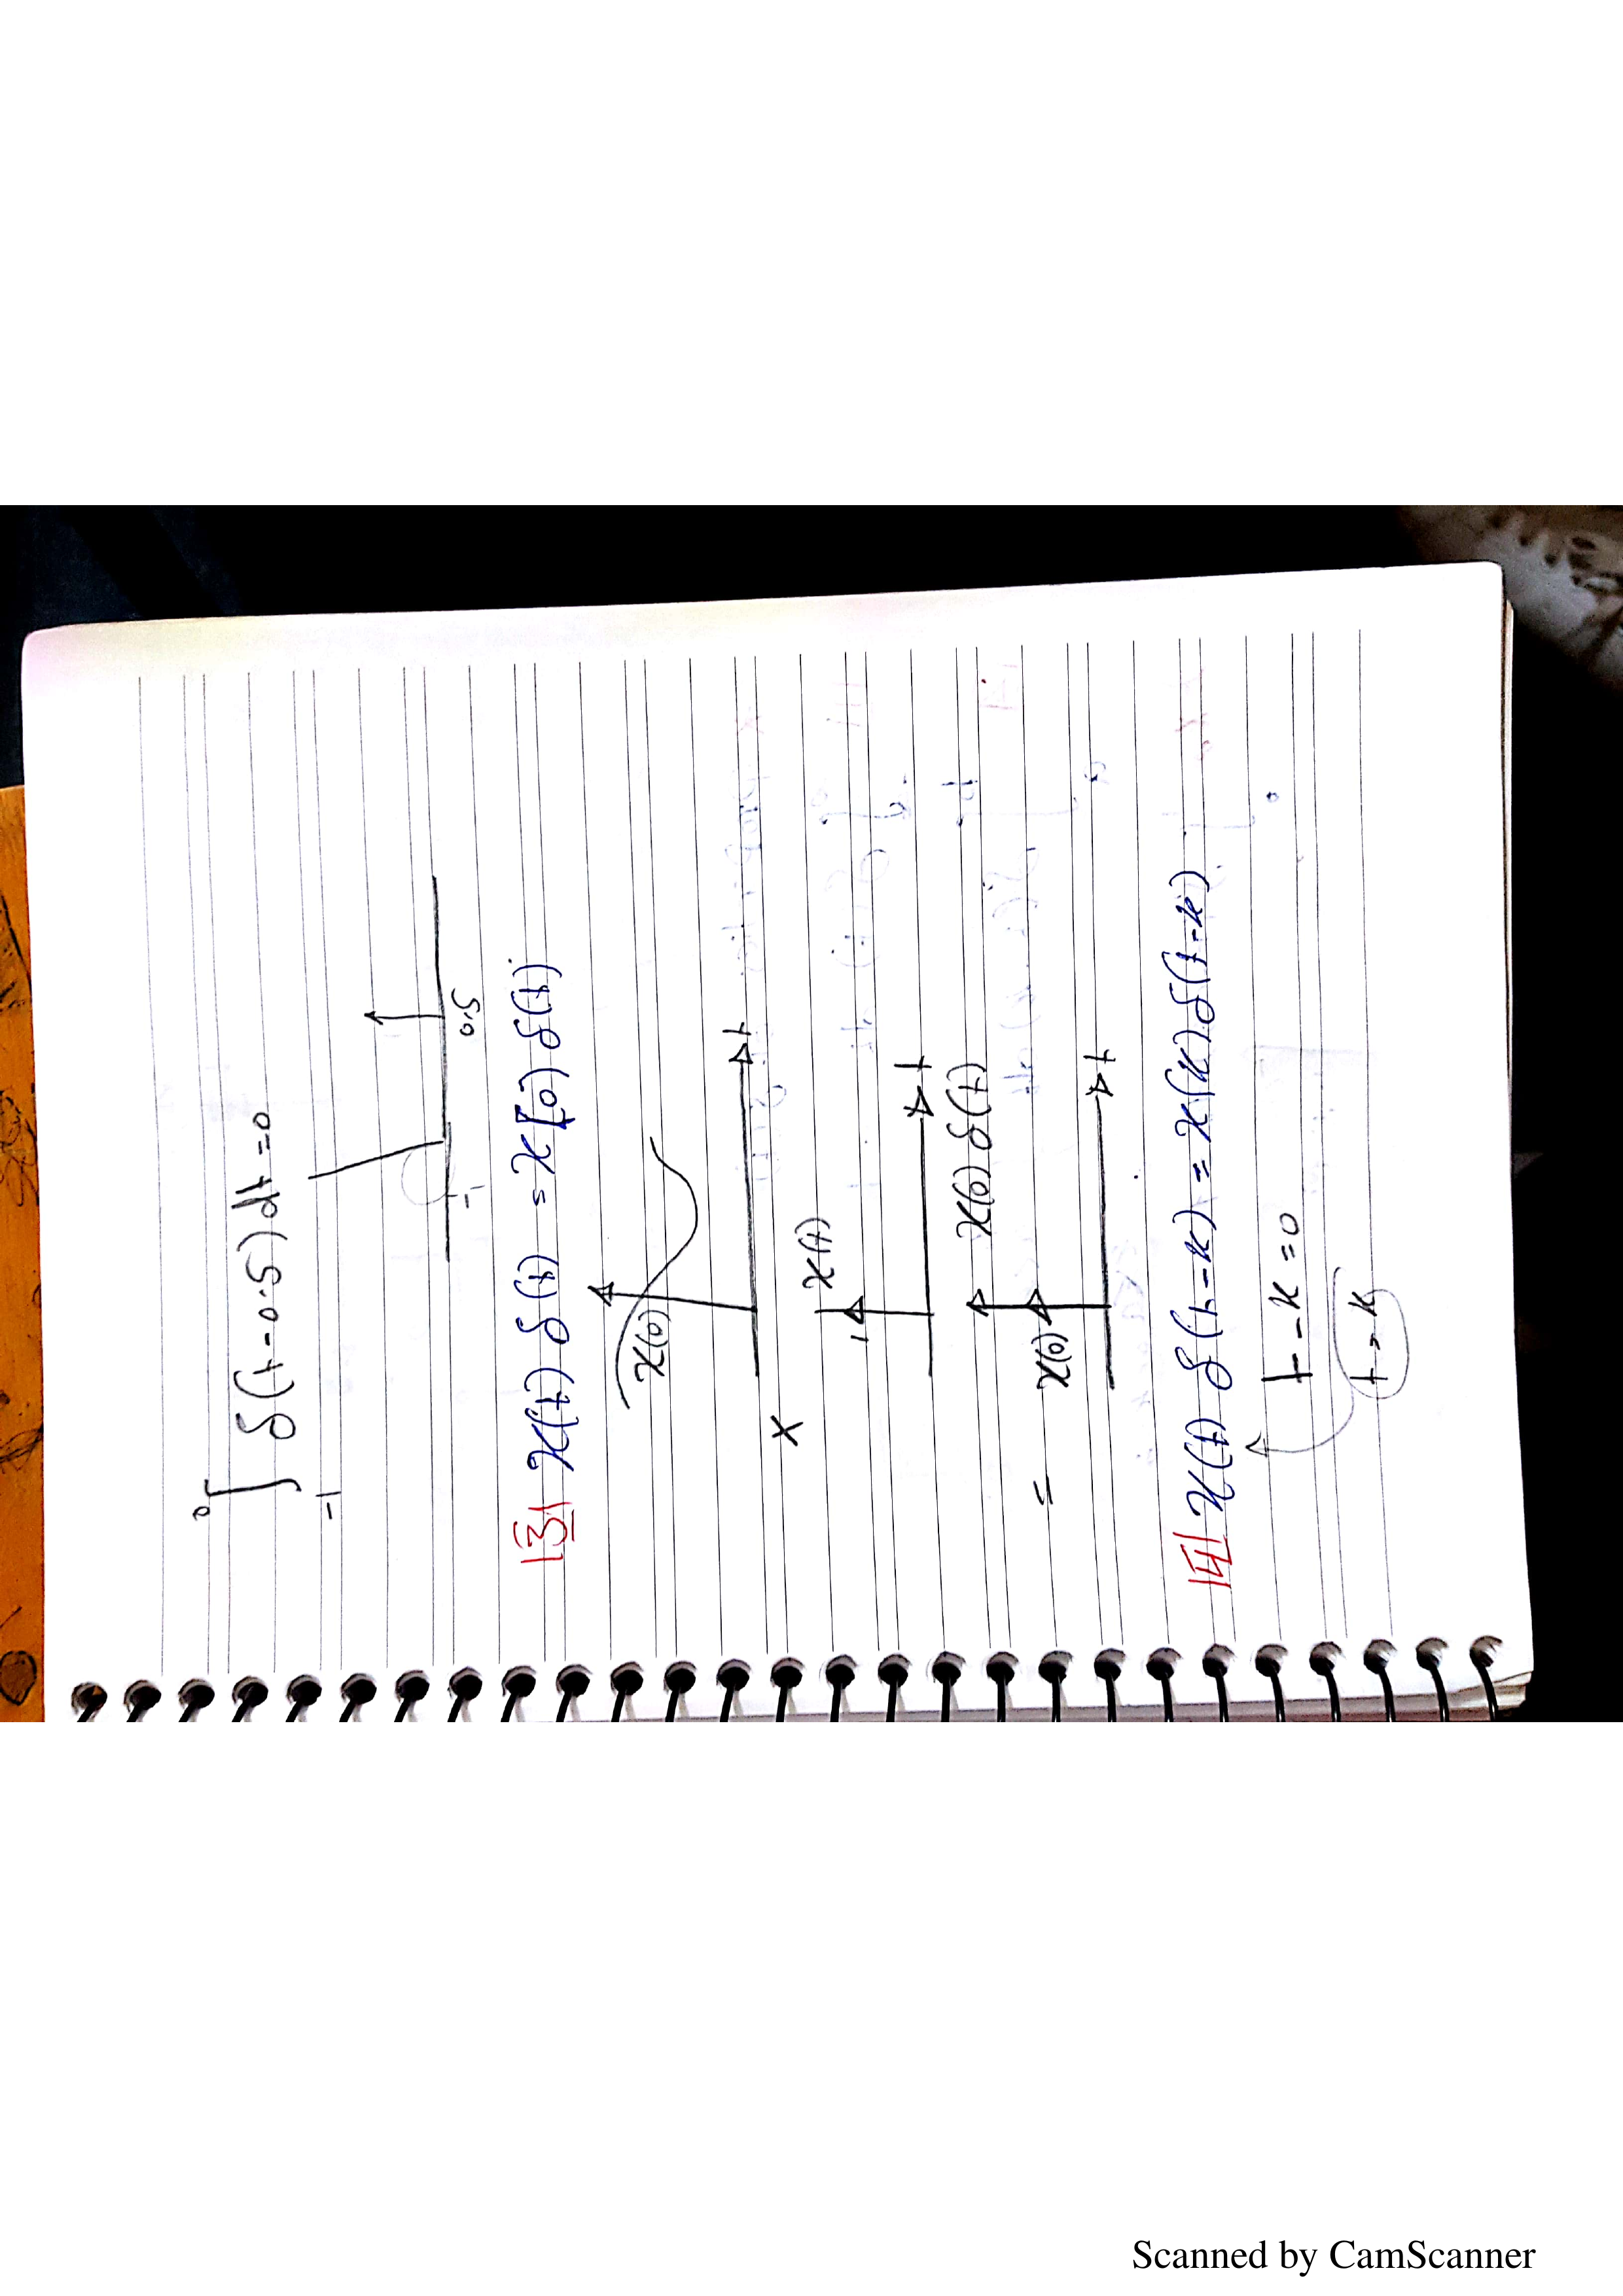 0
∫ δ(t-0.5)dt=0
-1
-1 0.5
|3| x(t) δ(t) = x[0) δ(t)
x(0)
t
×
x(t)
1
t
x(0) δ(t)
=
x(0)
t
|4| x(t) δ(t-k) = x(k) δ(t-k)
t-k=0
t=k
Scanned by CamScanner